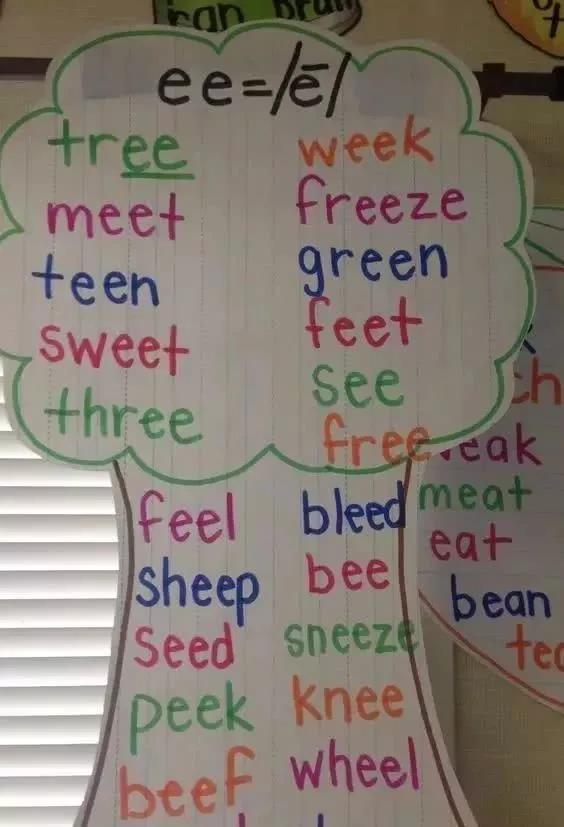 ee=/ē/
tree week
meet freeze
teen green
sweet feet
three see
free
feel bleed
sheep bee
seed sneeze
peek knee
beef wheel
meat
eat
bean